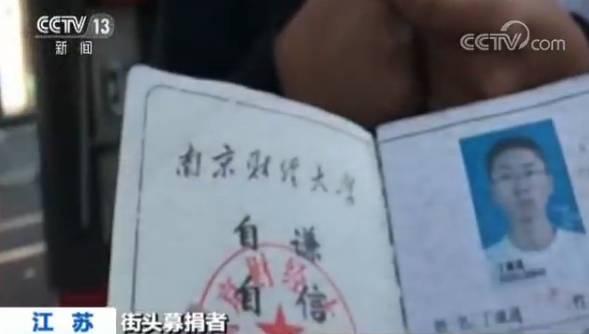 CCTV 13
新闻
CCTV.com
南京财经大学
自谦
自信
姓名:丁
江苏 街头募捐者